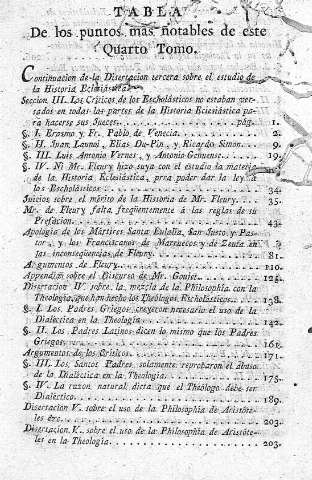 TABLA
De los puntos mas notables de este
Quarto Tomo.
Continuacion de la Disertacion tercera sobre el estudio de
la Historia Eclesiástica.
Seccion III. Los Críticos de los Escholásticos no estaban ver-
sados en todas las partes de la Historia Eclesiástica pa-
ra hacerse sus Jueces. pág. 1.
§. I. Erasmo y Fr. Pablo de Venecia. 2.
§. II. Juan Launoi, Elías Du-Pin, y Ricardo Simon. 9.
§. III. Luis Antonio Vernei, y Antonio Genuense. 19.
§. IV. Ni Mr. Fleury hizo suya con el estudio la materia
de la Historia Eclesiástica, para poder dar la ley á
los Escholásticos. 34.
Juicios sobre el mérito de la Historia de Mr. Fleury. 35.
Mr. de Fleury falta freqüentemente á las reglas de su
Prefacion. 43.
Apología de los Mártires Santa Eulalia, San Justo y Pas-
tor, y los Franciscanos de Marruecos y de Ceuta en
las inconseqüencias de Fleury. 81.
Argumentos de Fleury. 110.
Appendice sobre el Discurso de Mr. Goujet. 125.
Disertacion IV. sobre la mezcla de la Philosophía con la
Theología, que han hecho los Theólogos Escholásticos. 138.
§. I. Los Padres Griegos creyeron necesario el uso de la
Dialéctica en la Theología. 142.
§. II. Los Padres Latinos dicen lo mismo que los Padres
Griegos. 161.
Argumentos de los Críticos. 171.
§. III. Los Santos Padres solamente reprobaron el abuso
de la Dialéctica en la Theología. 175.
§. IV. La razon natural dicta que el Theólogo debe ser
Dialéctico. 189.
Disertacion V. sobre el uso de la Philosophía de Aristóte-
les &c. 203.
Disertacion V. sobre el uso de la Philosophía de Aristóte-
les en la Theología. 203.